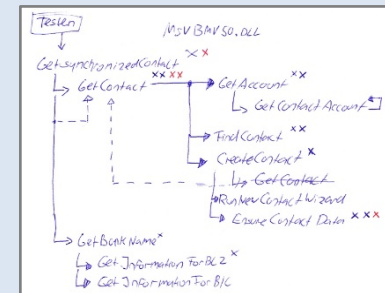 Testen
MSVBMV50.DLL
GetSynchronizedContact
GetContact
GetAccount
GetContactAccount
FindContact
CreateContact
GetContact
RunNewContactWizard
EnsureContactData
GetBankName
GetInformationForBLZ
GetInformationForBIC